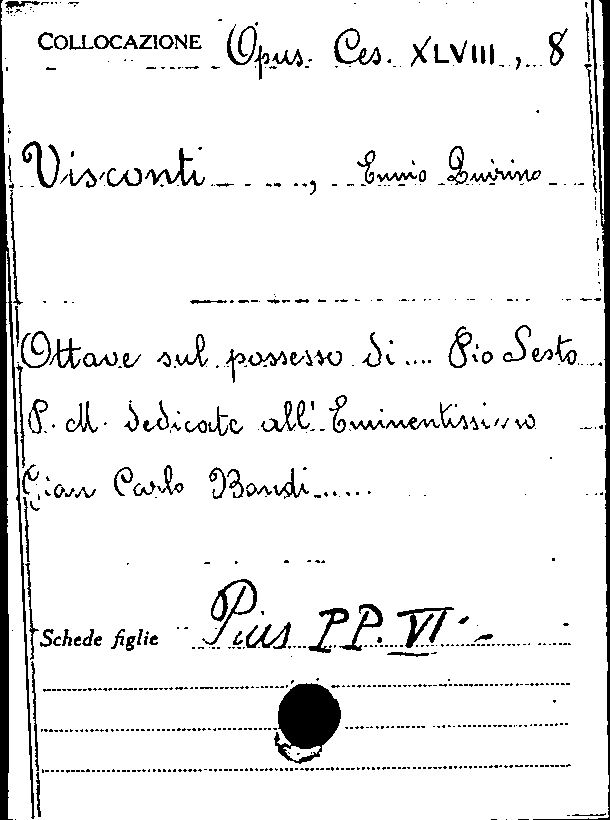 COLLOCAZIONE Opus. Ces. XLVIII, 8
Visconti, Ennio Quirino
Ottave sul possesso di.... Pio Sesto
P. M. dedicate all' Eminentissimo
Gian Carlo Bandi......
Schede figlie Pius PP. VI.-